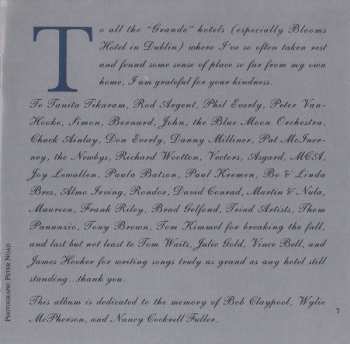 To all the "Grande" hotels (especially Blooms
Hotel in Dublin) where I've so often taken rest
and found some sense of place so far from my own
home, I am grateful for your kindness.
To Tanita Tikaram, Rod Argent, Phil Everly, Peter Van-
Hooke, Simon, Bernard, John, the Blue Moon Orchestra,
Chuck Ainlay, Don Everly, Danny Milliner, Pat McIner-
ney, the Newbys, Richard Wootton, Vectors, Asgard, MCA,
Joy Lewallen, Paula Batson, Paul Kremen, Bo & Linda
Bres, Almo Irving, Rondor, David Conrad, Martin & Nula,
Maureen, Frank Riley, Brad Gelfond, Triad Artists, Thom
Panunzio, Tony Brown, Tom Kimmel for breaking the fall,
and last but not least to Tom Waits, Julie Gold, Vince Bell, and
James Hooker for writing songs truly as grand as any hotel still
standing...thank you.
This album is dedicated to the memory of Bob Claypool, Wylie
McPherson, and Nancy Cockrell Fuller.
Photograph: Peter Nash
7